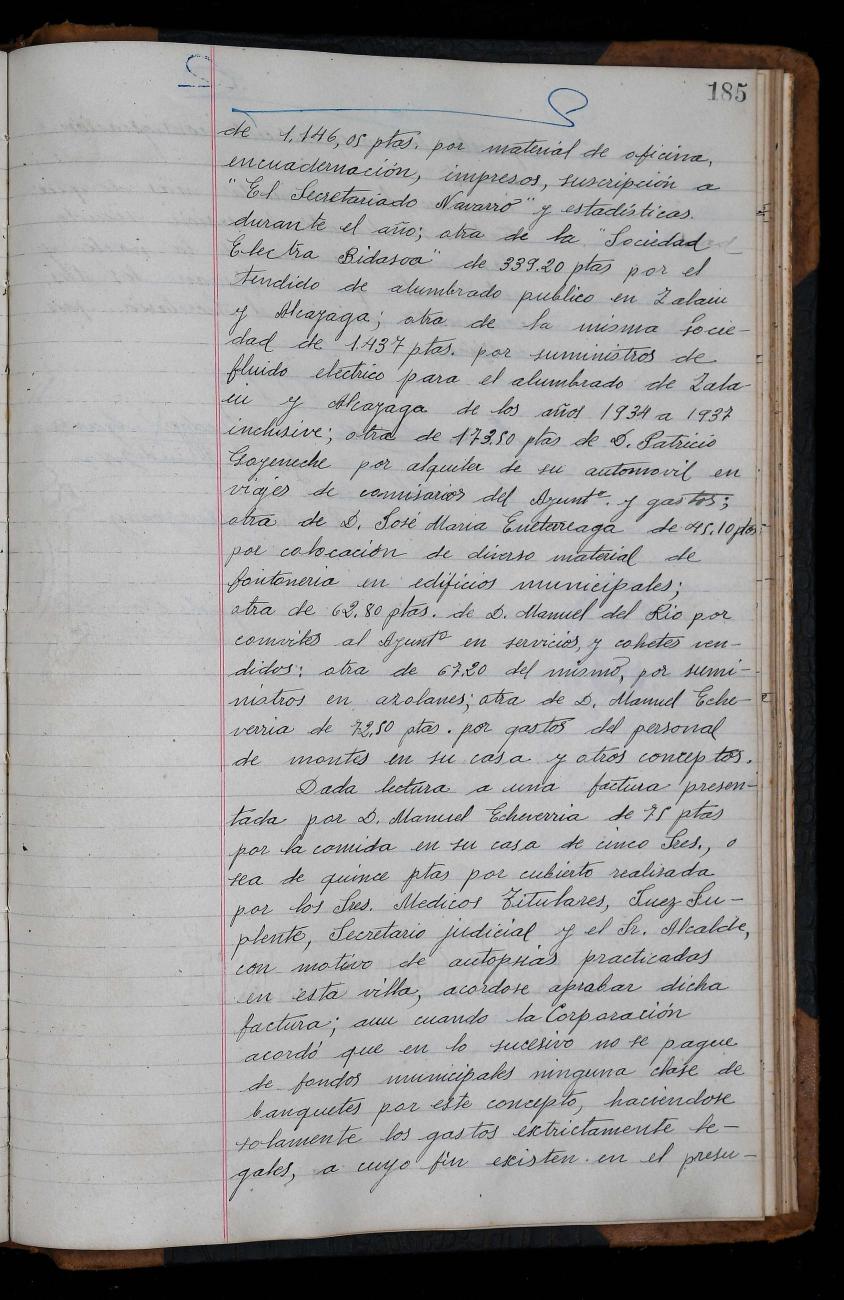 185
de 1.146,05 ptas. por material de oficina,
encuadernación, impresos, suscripción a
"El Secretariado Navarro" y estadísticas
durante el año; otra de la "Sociedad
Electra Bidasoa" de 339.20 ptas por el
tendido de alumbrado publico en Zalain
y Alcayaga; otra de la misma Socie-
dad de 1.437 ptas. por suministros de
fluido electrico para el alumbrado de Zala-
in y Alcayaga de los años 1934 a 1937
inclusive; otra de 173.50 ptas de D. Patricio
Goyeneche por alquiler de su automovil en
viajes de comisarios del Ayuntº. y gastos;
otra de D. José Maria de 45.10 ptas
por colocación de diverso material de
fontoneria en edificios municipales;
otra de 62.80 ptas. de D. Manuel del Rio por
convites al Ayuntº en servicios, y cohetes ven-
didos: otra de 67.20 del mismo, por sumi-
nistros en azolanes; otra de D. Manuel Eche-
verria de 72,50 ptas. por gastos del personal
de montes en su casa y otros conceptos.
Dada lectura a una factura presen-
tada por D. Manuel Echeverria de 75 ptas
por la comida en su casa de cinco Sres., o
sea de quince ptas por cubierto realizada
por los Sres. Medicos Titulares, Juez Su-
plente, Secretario judicial y el Sr. Alcalde,
con motivo de autopsias practicadas
en esta villa, acordose aprobar dicha
factura; aun cuando la Corporación
acordó que en lo sucesivo no se pague
de fondos municipales ninguna clase de
banquetes por este concepto, haciendose
solamente los gastos extrictamente le-
gales, a cuyo fin existen en el presu-